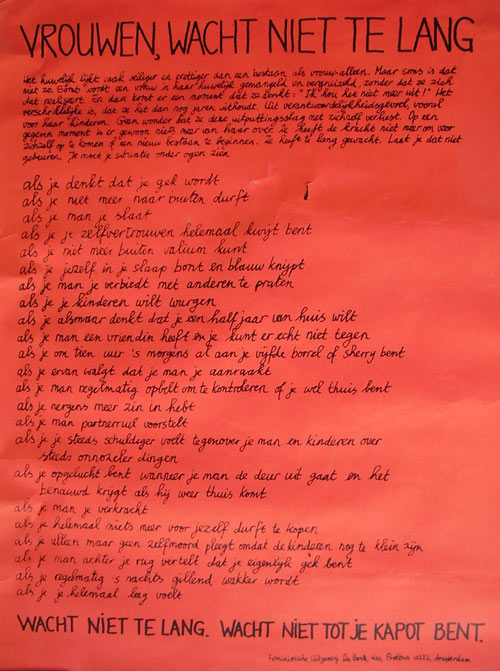 VROUWEN, WACHT NIET TE LANG
Het huwelijk lijkt vaak veiliger en prettiger dan een bestaan als vrouw-alleen. Maar soms is dat
niet zo. Soms wordt een vrouw in haar huwelijk gemangeld en vergruizeld, zonder dat ze zich
dat realiseert. En dan komt er een moment dat ze denkt: "Ik hou het niet meer uit!" Het
verschrikkelijke is, dat ze het dan nog jaren uithoudt. Uit verantwoordelijkheidsgevoel, vooral
voor haar kinderen. Geen wonder dat ze deze uitputtingsslag met zichzelf verliest. Op een
gegeven moment is er gewoon niets meer van haar over. Ze heeft de kracht niet meer om voor
zichzelf op te komen of een nieuw bestaan te beginnen. Ze heeft te lang gewacht. Laat je dat niet
gebeuren. Je moet je situatie onder ogen zien
als je denkt dat je gek wordt
als je niet meer naar buiten durft
als je man je slaat
als je je zelfvertrouwen helemaal kwijt bent
als je niet meer buiten valium kunt
als je jezelf in je slaap bont en blauw knijpt
als je man je verbiedt met anderen te praten
als je je kinderen wilt wurgen
als je alsmaar denkt dat je een half jaar van huis wilt
als je man een vriendin heeft en je kunt er echt niet tegen
als je om tien uur 's morgens al aan je vijfde borrel of sherry bent
als je ervan walgt dat je man je aanraakt
als je man regelmatig opbelt om te kontroleren of je wel thuis bent
als je nergens meer zin in hebt
als je man partnerruil voorstelt
als je je steeds schuldiger voelt tegenover je man en kinderen over
steeds onnozeler dingen
als je opgelucht bent wanneer je man de deur uit gaat en het
benauwd krijgt als hij weer thuis komt
als je man je verkracht
als je helemaal niets meer voor jezelf durft te kopen
als je alleen maar geen zelfmoord pleegt omdat de kinderen nog te klein zijn
als je man achter je rug vertelt dat je eigenlijk gek bent
als je regelmatig s nachts gillend wakker wordt
als je je helemaal leeg voelt
WACHT NIET TE LANG. WACHT NIET TOT JE KAPOT BENT.
Feministische Uitgeverij De Bonte Was, Postbus Amsterdam